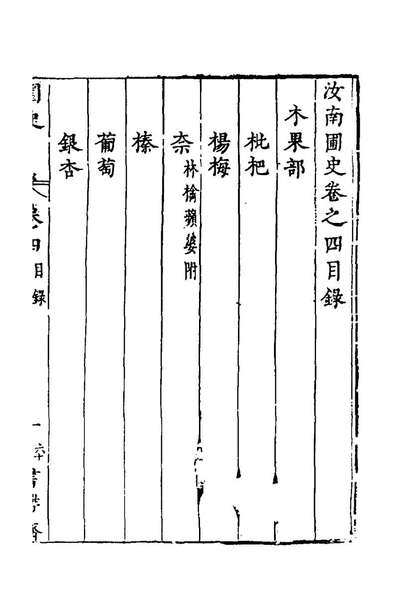 汝南圃史卷之四目錄
木果部
枇杷
楊梅
柰林檎蘋婆附
榛
葡萄
銀杏
圃史
卷四目錄
一
書帶齋